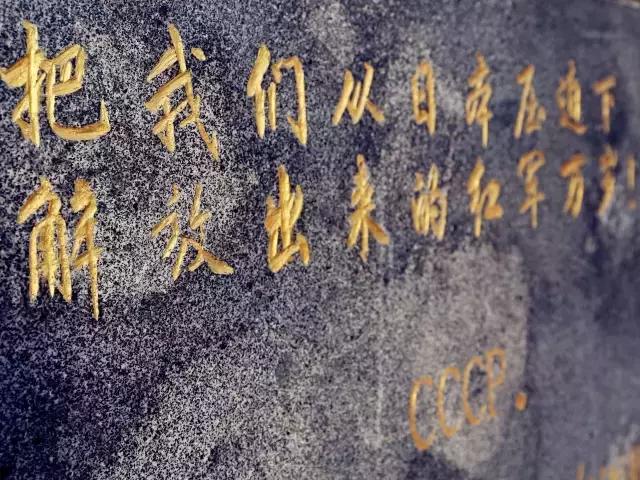 把我们从日本压迫下
解放出来的红军万岁!
CCCP.